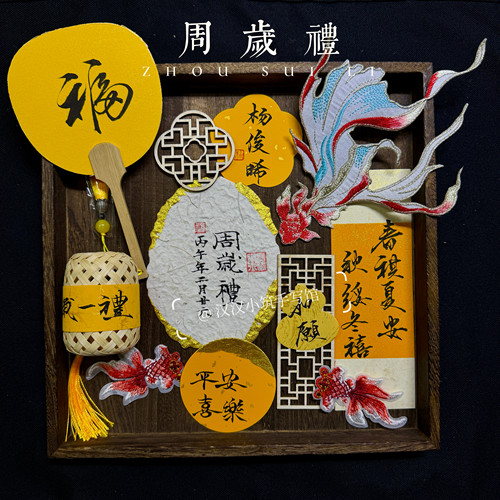 周歲禮
ZHOU SUI LI
福
杨俊晞
周歲禮
丙午年二月廿
春祺夏安
秋綏冬禧
一禮
如願
平安
喜樂
@汉汉小筑手写馆